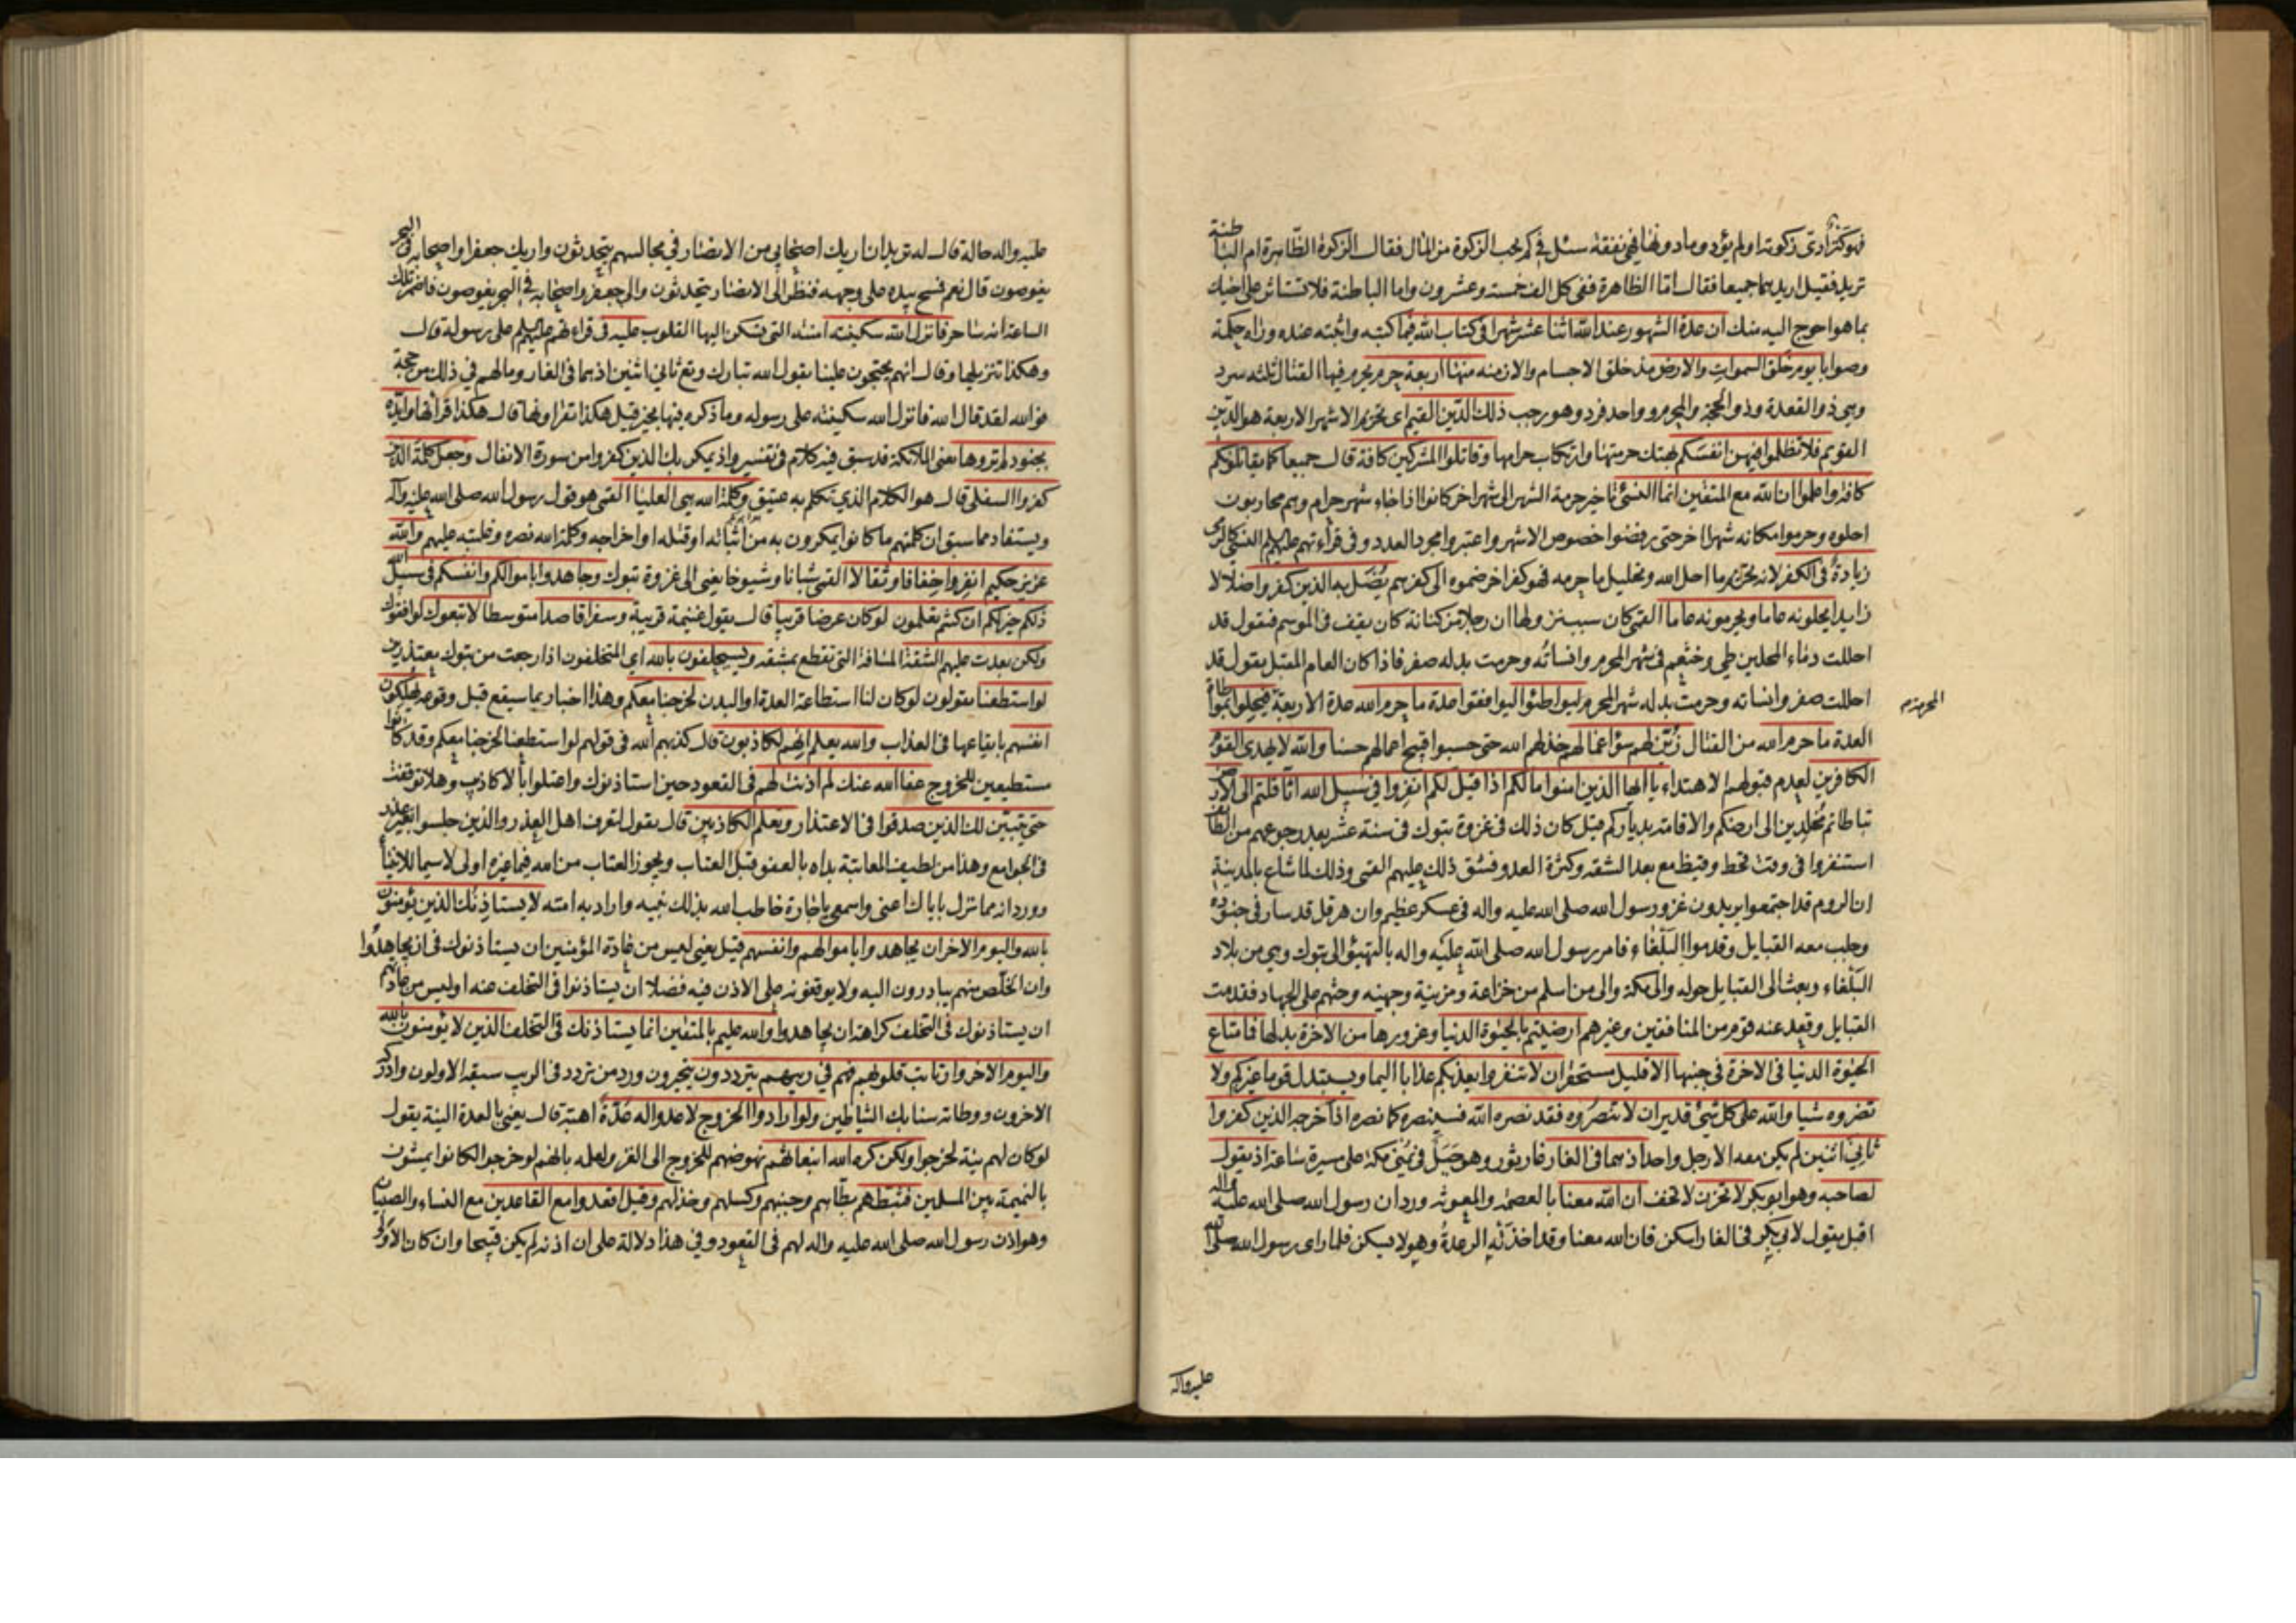 فهو كنز أدى زكوته او لم يؤد وما دونها فهي نفقة سئل في كم يجب الزكوة من المال فقال الزكوة الظاهرة ام الباطنة
تريد فقيل اريدهما جميعا فقال اما الظاهرة ففي كل الف خمسة وعشرون واما الباطنة فلا تستأثر على اخيك
بما هو احوج اليه منك ان عدة الشهور عند الله اثنا عشر شهرا في كتاب الله فيما كتبه واثبته عنده وراه حكمة
وصوابا يوم خلق السموات والارض مذ خلق الاجسام والازمنة منها اربعة حرم يحرم فيها القتال ثلثه سرد
وهي ذو القعدة وذو الحجة والمحرم وواحد فرد وهو رجب ذلك الدين القيم اي تحريم الاشهر الاربعة هو الدين
القويم فلا تظلموا فيهن انفسكم بهتك حرمتها وارتكاب حرامها وقاتلوا المشركين كافة قال جميعا كما يقاتلونكم
كافة واعلموا ان الله مع المتقين انما النسئ تاخير حرمة الشهر الى شهر اخر كانوا اذا جاء شهر حرام وهم محاربون
احلوه وحرموا مكانه شهرا اخر حتى رفضوا خصوص الاشهر واعتبروا مجرد العدد وفي قراءتهم عليهم النسي كالرمي
زيادة في الكفر لانه تحريم ما احل الله وتحليل ما حرمه فهو كفر اخر ضموه الى كفرهم يضل به الذين كفروا ضلالا
زايدا يحلونه عاما ويحرمونه عاما القمي كان سبب نزولها ان رجلا من كنانة كان يقف في الموسم فيقول قد
احللت دماء المحلين طي وخثعم في شهر المحرم وانساته وحرمت بدله صفر فاذا كان العام المقبل يقول قد
احللت صفر وانساته وحرمت بدله شهر المحرم ليواطئوا ليوافقوا عدة ما حرم الله عدة الاربعة فيحلوا
المحرمة
العدة ما حرم الله من القتال زين لهم سوء اعمالهم خذلهم الله حتى حسبوا قبيح اعمالهم حسنا والله لا يهدي القوم
الكافرين لعدم قبولهم الاهتداء يا ايها الذين امنوا ما لكم اذا قيل لكم انفروا في سبيل الله اثاقلتم الى الارض
تباطاتم مخلدين الى ارضكم والاقامة بدياركم قيل كان ذلك في غزوة تبوك في سنة عشر بعد رجوعهم من الطائف
استنفروا في وقت قحط وقيظ مع بعد الشقة وكثرة العدو فشق ذلك عليهم القمي وذلك لما شاع بالمدينة
ان الروم قد اجتمعوا يريدون غزو رسول الله صلى الله عليه واله في عسكر عظيم وان هرقل قد سار في جنوده
وجلب معه القبايل وقدموا البلقاء فامر رسول الله صلى الله عليه واله بالتهيؤ الى تبوك وهي من بلاد
البلقاء وبعث الى القبايل حوله والى مكة والى من اسلم من خزاعة ومزينة وجهينة وحثهم على الجهاد فقدمت
القبايل وقعد عنه قوم من المنافقين وغيرهم ارضيتم بالحيوة الدنيا وغرورها من الاخرة بدلها فما متاع
الحيوة الدنيا في الاخرة في جنبها الا قليل مستحقر ان لا تنفروا يعذبكم عذابا اليما ويستبدل قوما غيركم ولا
تضروه شيا والله على كل شئ قدير ان لا تنصروه فقد نصره الله فسينصره كما نصره اذ اخرجه الذين كفروا
ثاني اثنين لم يكن معه الا رجل واحد اذ هما في الغار غار ثور وهو جبل في يمنى مكة على مسيرة ساعة اذ يقول
لصاحبه وهو ابو بكر لا تحزن لا تخف ان الله معنا بالعصمة والمعونة ورد ان رسول الله صلى الله عليه واله
اقبل يقول لابي بكر في الغار اسكن فان الله معنا وقد اخذته الرعدة وهو لا يسكن فلما راى رسول الله صلى الله
عليه واله
عليه واله حاله قال له تريد ان اريك اصحابي من الانصار في مجالسهم يتحدثون واريك جعفرا واصحابه في البحر
يغوصون قال نعم فمسح بيده على وجهه فنظر الى الانصار يتحدثون والى جعفر واصحابه في البحر يغوصون فاضمر تلك
الساعة انه ساحر فانزل الله سكينته امنته التي تسكن اليها القلوب عليه في قراءتهم عليهم على رسوله قال
وهكذا تنزيلها وقال انهم يحتجون علينا بقول الله تبارك وتع ثاني اثنين اذ هما في الغار وما لهم في ذلك من حجة
فو الله لقد قال الله فانزل الله سكينته على رسوله وما ذكره فيها بخير قيل هكذا تقراونها قال هكذا قراتها وايده
بجنود لم تروها يعني الملائكة قد سبق فيه كلام في تفسير واذ يمكر بك الذين كفروا من سورة الانفال وجعل كلمة الذين
كفروا السفلى قال هو الكلام الذي تكلم به عتيق وكلمة الله هي العليا القمي هو قول رسول الله صلى الله عليه وآله
ويستفاد مما سبق ان كلمتهم ما كانوا يمكرون به من اثباته او قتله او اخراجه وكلمة الله نصره وغلبته عليهم والله
عزيز حكيم انفروا خفافا وثقالا القمي شبانا وشيوخا يعني الى غزوة تبوك وجاهدوا باموالكم وانفسكم في سبيل الله
ذلكم خير لكم ان كنتم تعلمون لو كان عرضا قريبا قال يقول غنيمة قريبة وسفرا قاصدا متوسطا لاتبعوك لوافقوك
ولكن بعدت عليهم الشقة المسافة التي تقطع بمشقة وسيحلفون بالله اي المتخلفون اذا رجعت من تبوك معتذرين
لو استطعنا يقولون لو كان لنا استطاعة العدة او البدن لخرجنا معكم وهذا اخبار بما سيقع قبل وقوعه يهلكون
انفسهم بايقاعها في العذاب والله يعلم انهم لكاذبون قال كذبهم الله في قولهم لو استطعنا لخرجنا معكم وقد كانوا
مستطيعين للخروج عفا الله عنك لم اذنت لهم في القعود حين استاذنوك واعتلوا بالاكاذيب وهلا توقفت
حتى يتبين لك الذين صدقوا في الاعتذار وتعلم الكاذبين قال يقول لتعرف اهل العذر والذين جلسوا بغير عذر
في الجوامع وهذا من لطيف المعاتبة بداه بالعفو قبل العتاب ويجوز العتاب من الله فيما غيره اولى لاسيما للانبياء
وورد انه مما نزل باياك اعني واسمعي يا جارة خاطب الله بذلك نبيه واراد به امته لا يستاذنك الذين يؤمنون
بالله واليوم الاخر ان يجاهدوا باموالهم وانفسهم قيل يعني ليس من عادة المؤمنين ان يستاذنوك في ان يجاهدوا
وان الخلص منهم يبادرون اليه ولا يوقفونه على الاذن فيه فضلا ان يستاذنوا في التخلف عنه او ليس من عادتهم
ان يستاذنوك في التخلف كراهة ان يجاهدوا والله عليم بالمتقين انما يستاذنك في التخلف الذين لا يؤمنون بالله
واليوم الاخر وارتابت قلوبهم فهم في ريبهم يترددون يتحيرون ورد من تردد في الريب سبقه الاولون وادركه
الاخرون ووطاته سنابك الشياطين ولو ارادوا الخروج لاعدوا له عدة اهبة قال يعني بالعدة النية يقول
لو كان لهم نية لخرجوا ولكن كره الله انبعاثهم نهوضهم للخروج الى الغزو لعلمه بانهم لو خرجوا لكانوا يمشون
بالنميمة بين المسلمين فثبطهم بطاهم وجبنهم وكسلهم وخذلهم وقيل اقعدوا مع القاعدين مع النساء والصبيان
وهو اذن رسول الله صلى الله عليه واله لهم في القعود وفي هذا دلالة على ان اذنه لم يكن قبيحا وان كان الاولى